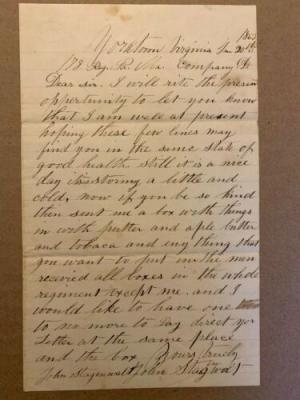 1863
Yorktown Virginia Ja 20th
178 Reg. P. Company
Dear sir. I will rite the presen
oppertunity to let you know
that I am well at present
hoping these few lines may
find you in the same state of
good health still it is a nice
day it storming a little and
cold, now if you be so kind
then sent me a box with things
in with butter and aple butter
and tobaca and eny thing that
you want to put in the men
received all boxes in the whole
regiment except me. and I
would like to have one
to no more to Say direct yor
Letter at the same place
and the box Yours truely
John John